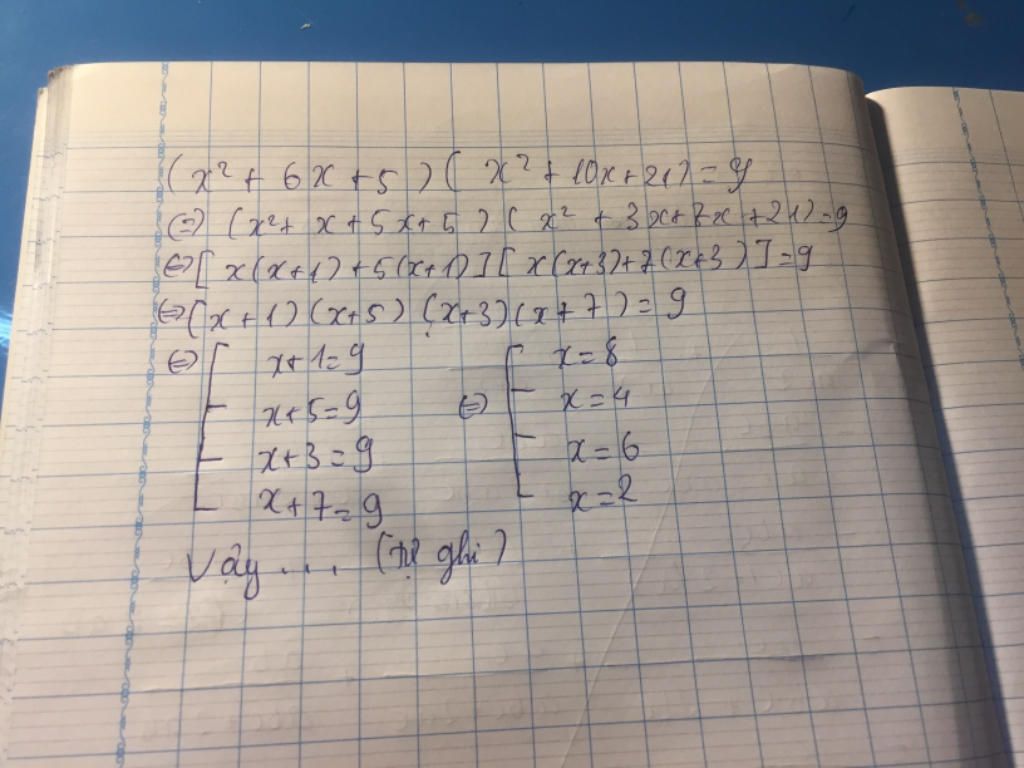 (x² + 6x + 5) (x² + 10x + 21) = 9
⇔ (x² + x + 5x + 5) (x² + 3x + 7x + 21) = 9
⇔ [x(x+1) + 5(x+1)] [x(x+3) + 7(x+3)] = 9
⇔ (x + 1) (x + 5) (x + 3) (x + 7) = 9
⇔ [ x + 1 = 9 [ x = 8
x + 5 = 9 ⇔ x = 4
x + 3 = 9 x = 6
x + 7 = 9 x = 2
Vậy .... (tự ghi)